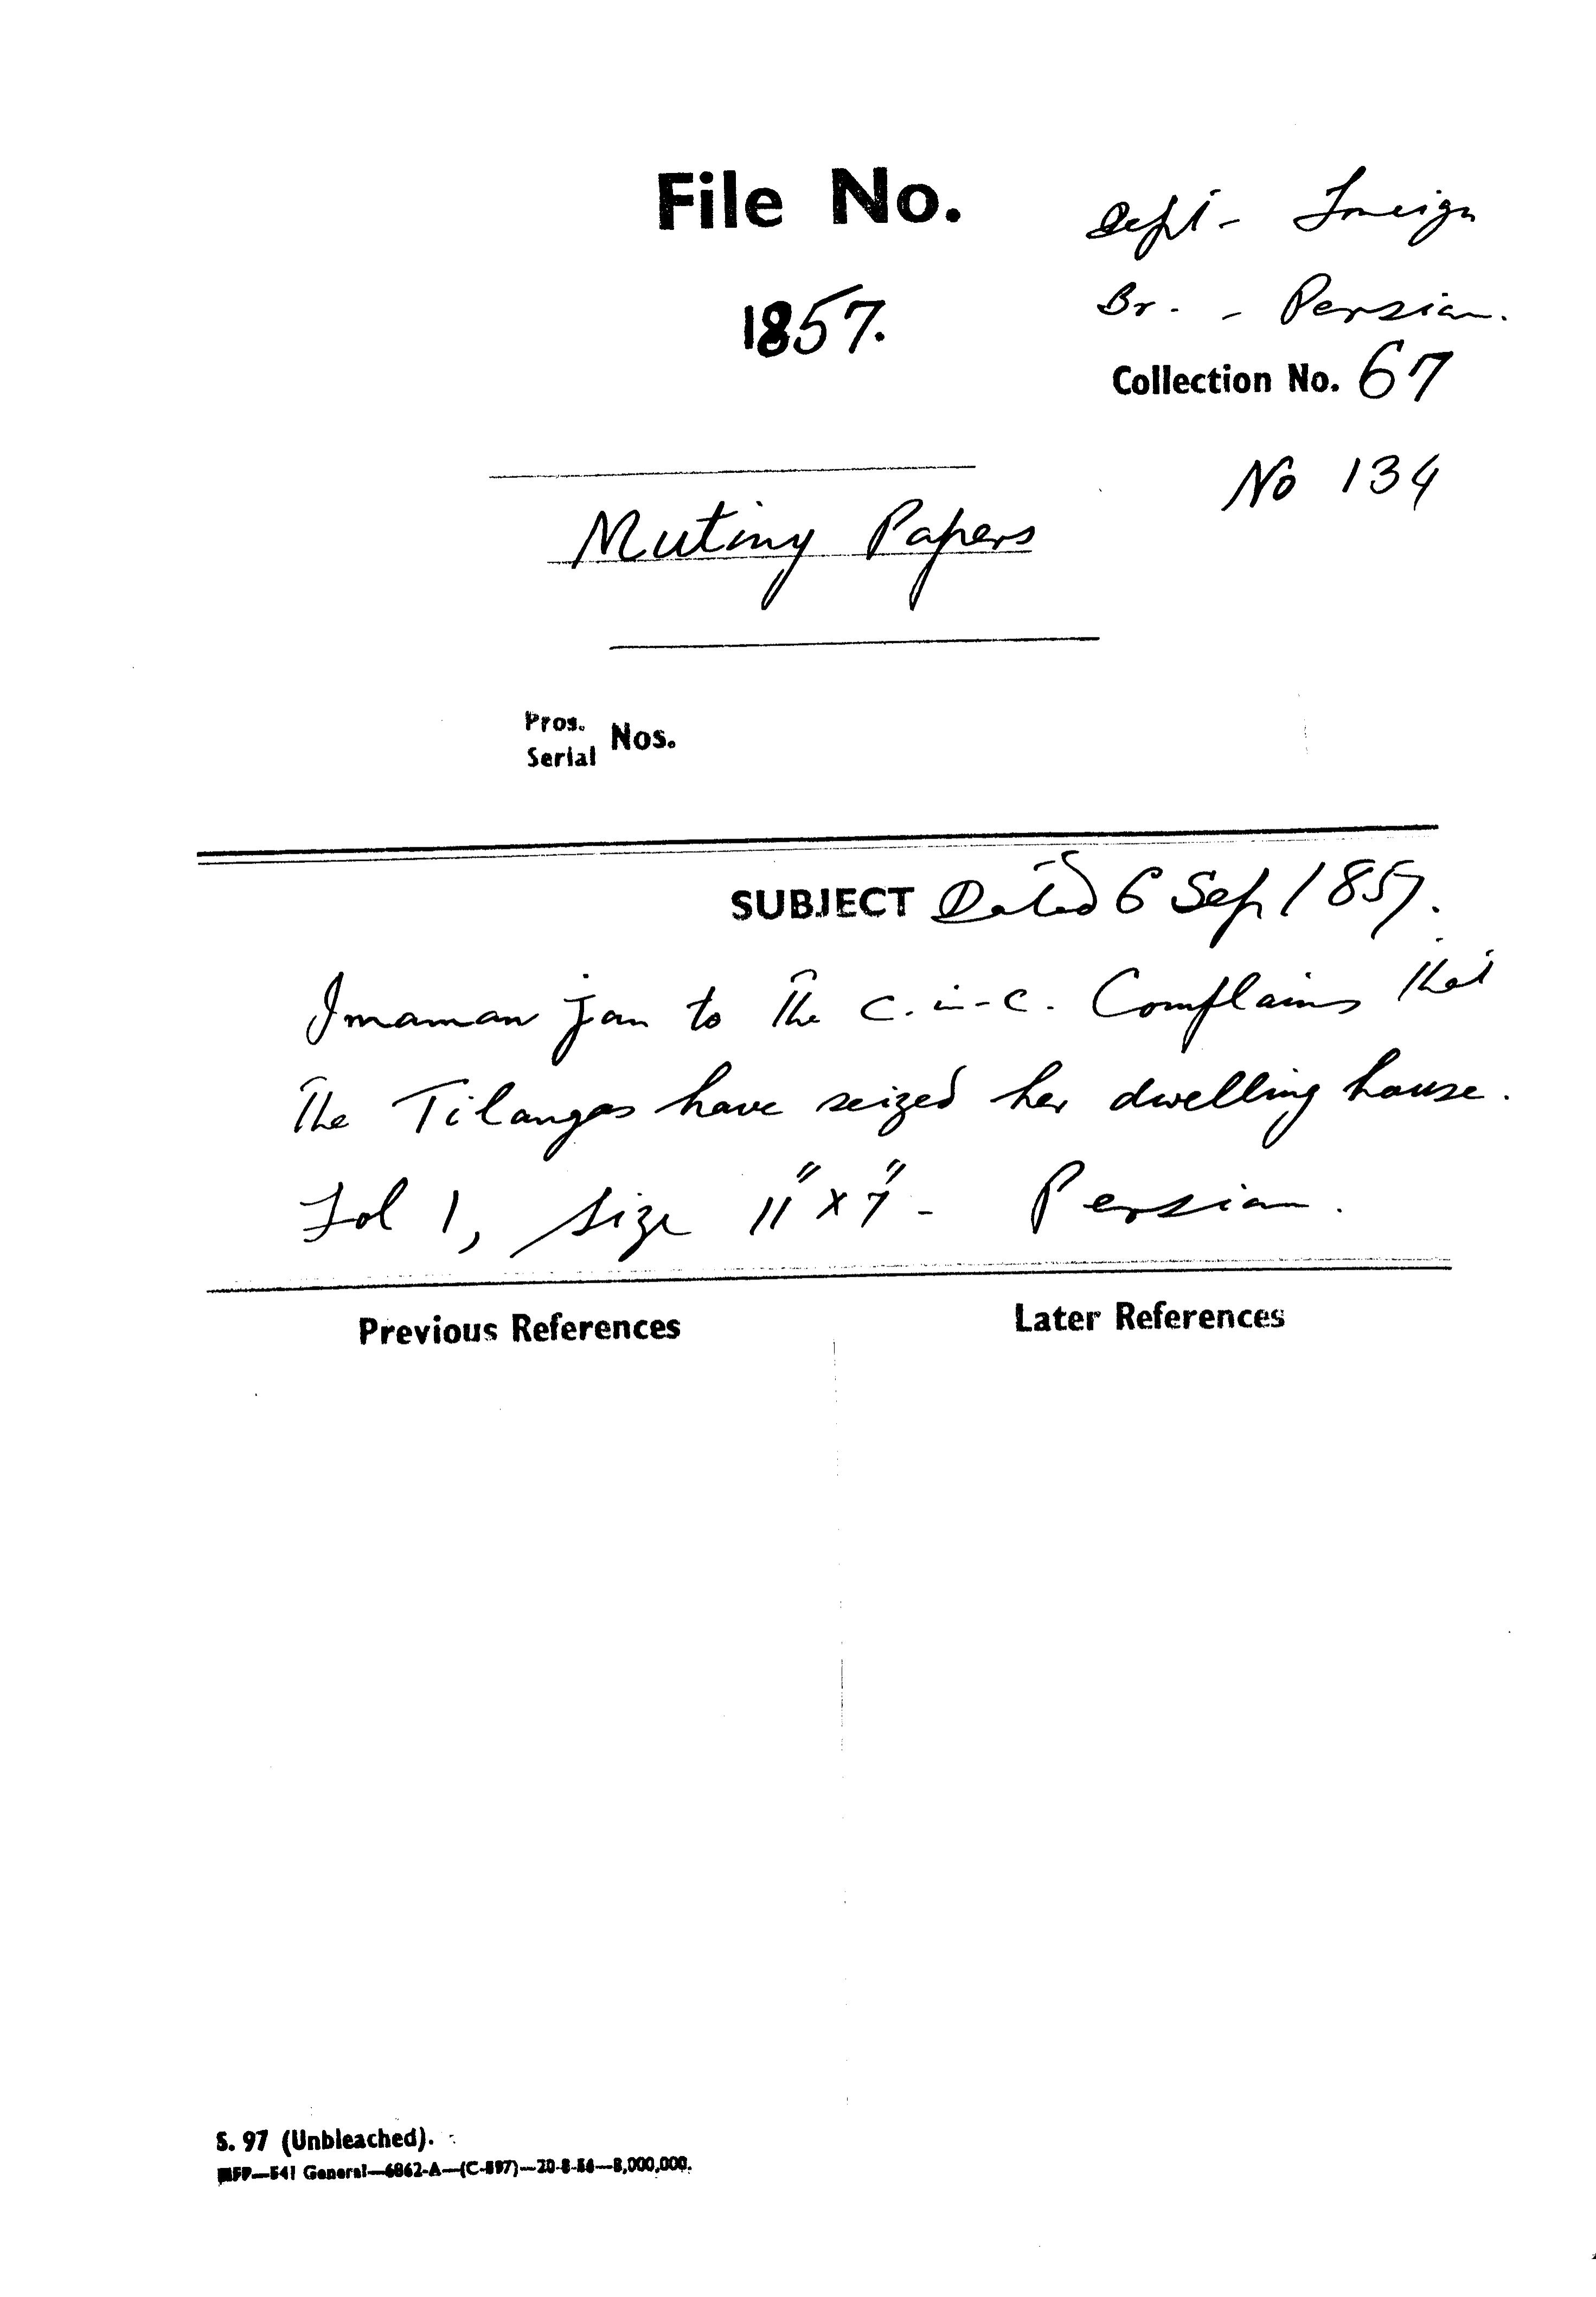 File No.
Dept - Foreign
1857.
Br. - Persian.
Collection No. 67
No 134
Mutiny Papers
Pros.
Serial Nos.
SUBJECT Dated 6 Sep 1857.
Imaman jan to the C.-in-C. Complains that
the Tilangas have seized her dwelling house.
Fol 1, size 11" x 7" - Persian.
Previous References
Later References
S. 97 (Unbleached).
General—6862-A—